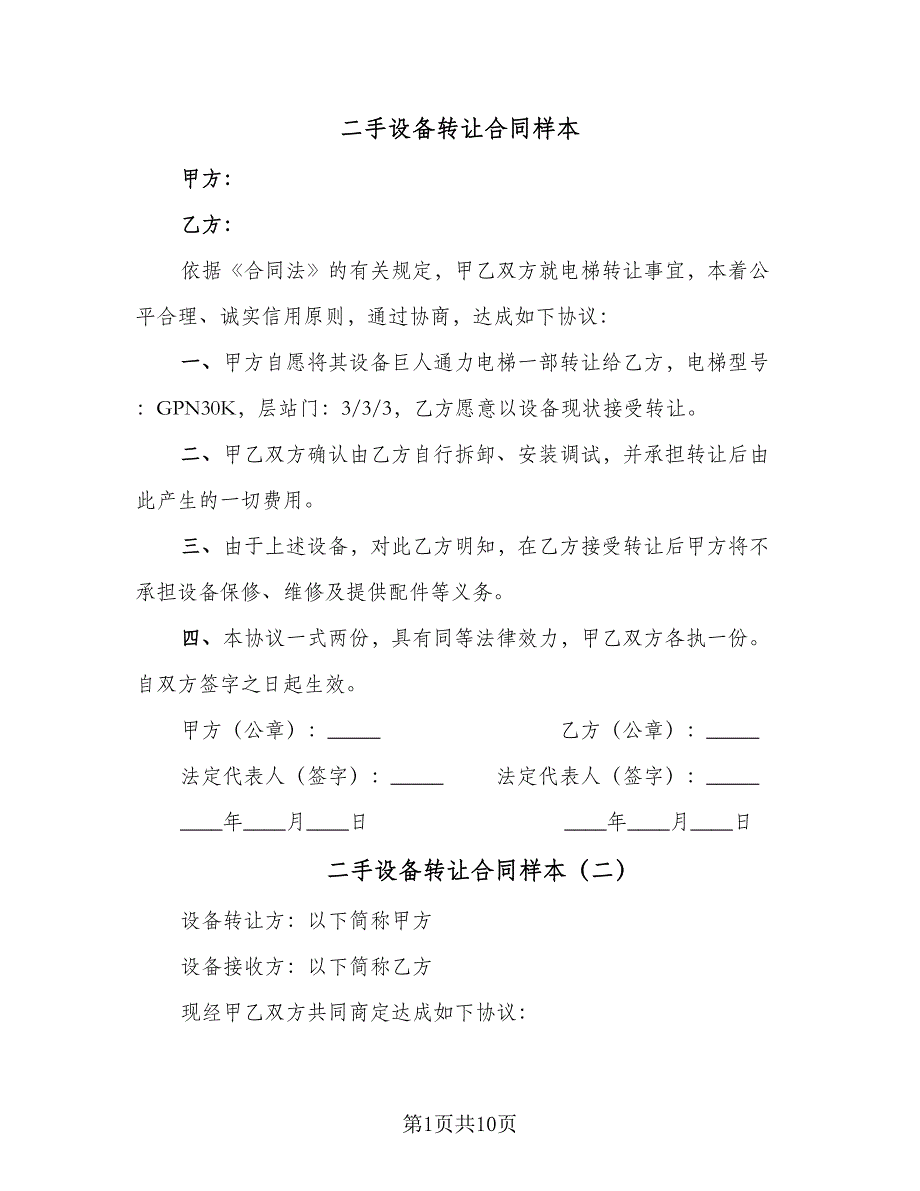 二手设备转让合同样本
甲方：
乙方：
依据《合同法》的有关规定，甲乙双方就电梯转让事宜，本着公
平合理、诚实信用原则，通过协商，达成如下协议：
一、甲方自愿将其设备巨人通力电梯一部转让给乙方，电梯型号
：GPN30K，层站门：3/3/3，乙方愿意以设备现状接受转让。
二、甲乙双方确认由乙方自行拆卸、安装调试，并承担转让后由
此产生的一切费用。
三、由于上述设备，对此乙方明知，在乙方接受转让后甲方将不
承担设备保修、维修及提供配件等义务。
四、本协议一式两份，具有同等法律效力，甲乙双方各执一份。
自双方签字之日起生效。
甲方（公章）：_____ 乙方（公章）：_____
法定代表人（签字）：_____ 法定代表人（签字）：_____
____年____月____日 ____年____月____日
二手设备转让合同样本（二）
设备转让方：以下简称甲方
设备接收方：以下简称乙方
现经甲乙双方共同商定达成如下协议：
第1页共10页